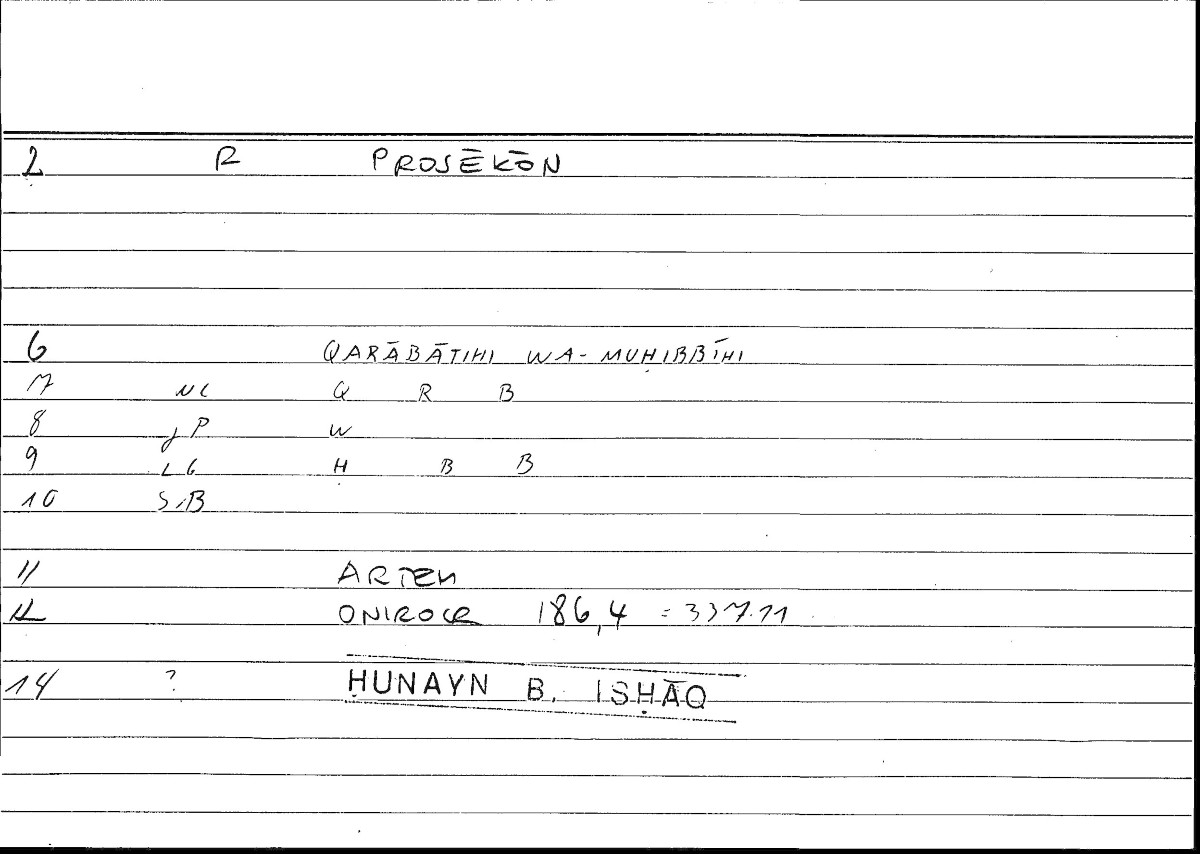 2 R PROSĒKŌN
6 QARĀBĀTIHI WA-MUḤIBBĪHI
7 NC Q R B
8 jP W
9 LG Ḥ B B
10 S,B
11 ARTEM
12 ONIROCR 186,4 = 337.11
14 ? ḤUNAYN B. ISḤĀQ